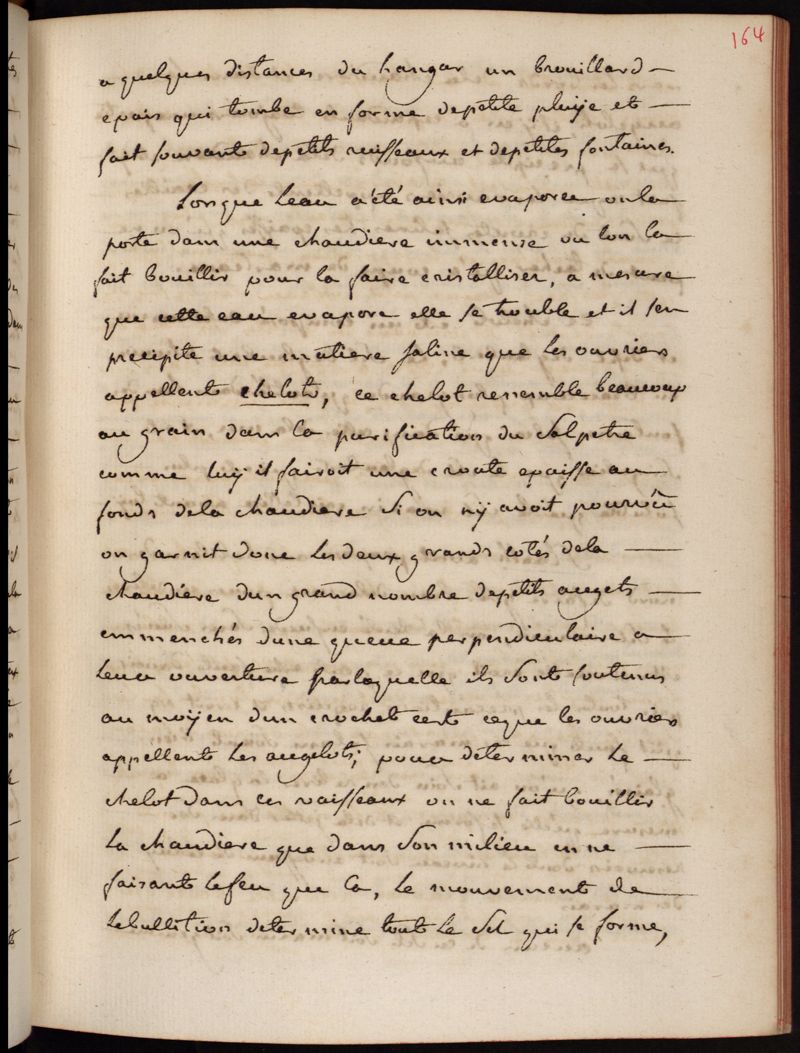 164
a quelques distances du hangar un brouillard —
epais qui tombe en forme depetite pluije et —
fait souvants depetits ruisseaux et depetites fontaines.
Lorsque Leau a été ainsi evaporee on la
porte dans une chaudiere immense ou lon la
fait bouillir pour la faire cristalliser, a mesure
que cette eau evapore elle se trouble et il sen
precipite une matiere saline que Les ouvriers
appellents chelots, ce chelot ressemble beaucoup
au grain dans la purification du Salpetre
comme luy il fairoit une croute epaisse au
fonds dela chaudiere Si on nÿ avoit pourvû
on garnit donc Les deux grands cotés dela —
chaudiere dun grand nombre depetits augets —
emmenchés dune queue perpendiculaire a
Leur ouverture par laquelle ils Sonts soutenus
au moÿen dun crochet cest ceque les ouvriers
appellents Les augelots; pour determiner Le —
chelot Dans ces vaisseaux on ne fait bouillir
La chaudiere que dans Son milieu en ne —
faisants lefeu que la, Le mouvements de
Lebullition determine touts Le Sel qui se forme,